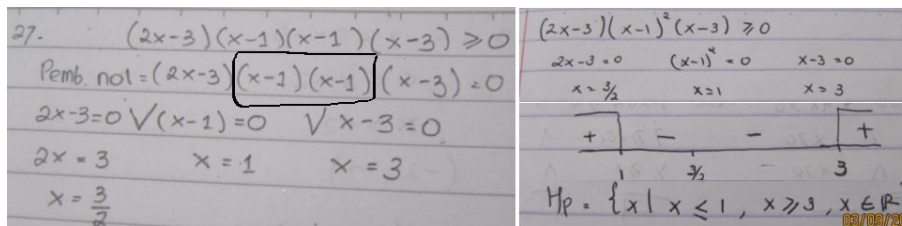 27. (2x-3)(x-1)(x-1)(x-3) ≥ 0
Pemb. nol = (2x-3)(x-1)(x-1)(x-3) = 0
2x-3=0 V (x-1)=0 V x-3=0
2x = 3 x = 1 x = 3
x = 3/2
(2x-3)(x-1)² (x-3) ≥ 0
2x-3=0 (x-1)² = 0 x-3=0
x = 3/2 x=1 x = 3
+ - - +
1 3/2 3
Hp = {x | x ≤ 1, x ≥ 3, x ∈ R
03/09/20